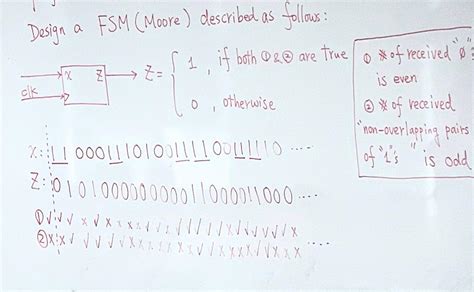 Design a FSM (Moore) described as follows:
x Z
clk
Z = { 1 , if both ① & ② are true
0 , otherwise
① # of received "0"
is even
② # of received
"non-overlapping pairs
of "1"s " is odd
x: 11 000111010011110011110 ....
Z: 0101000000000011000011000 ....
①
②